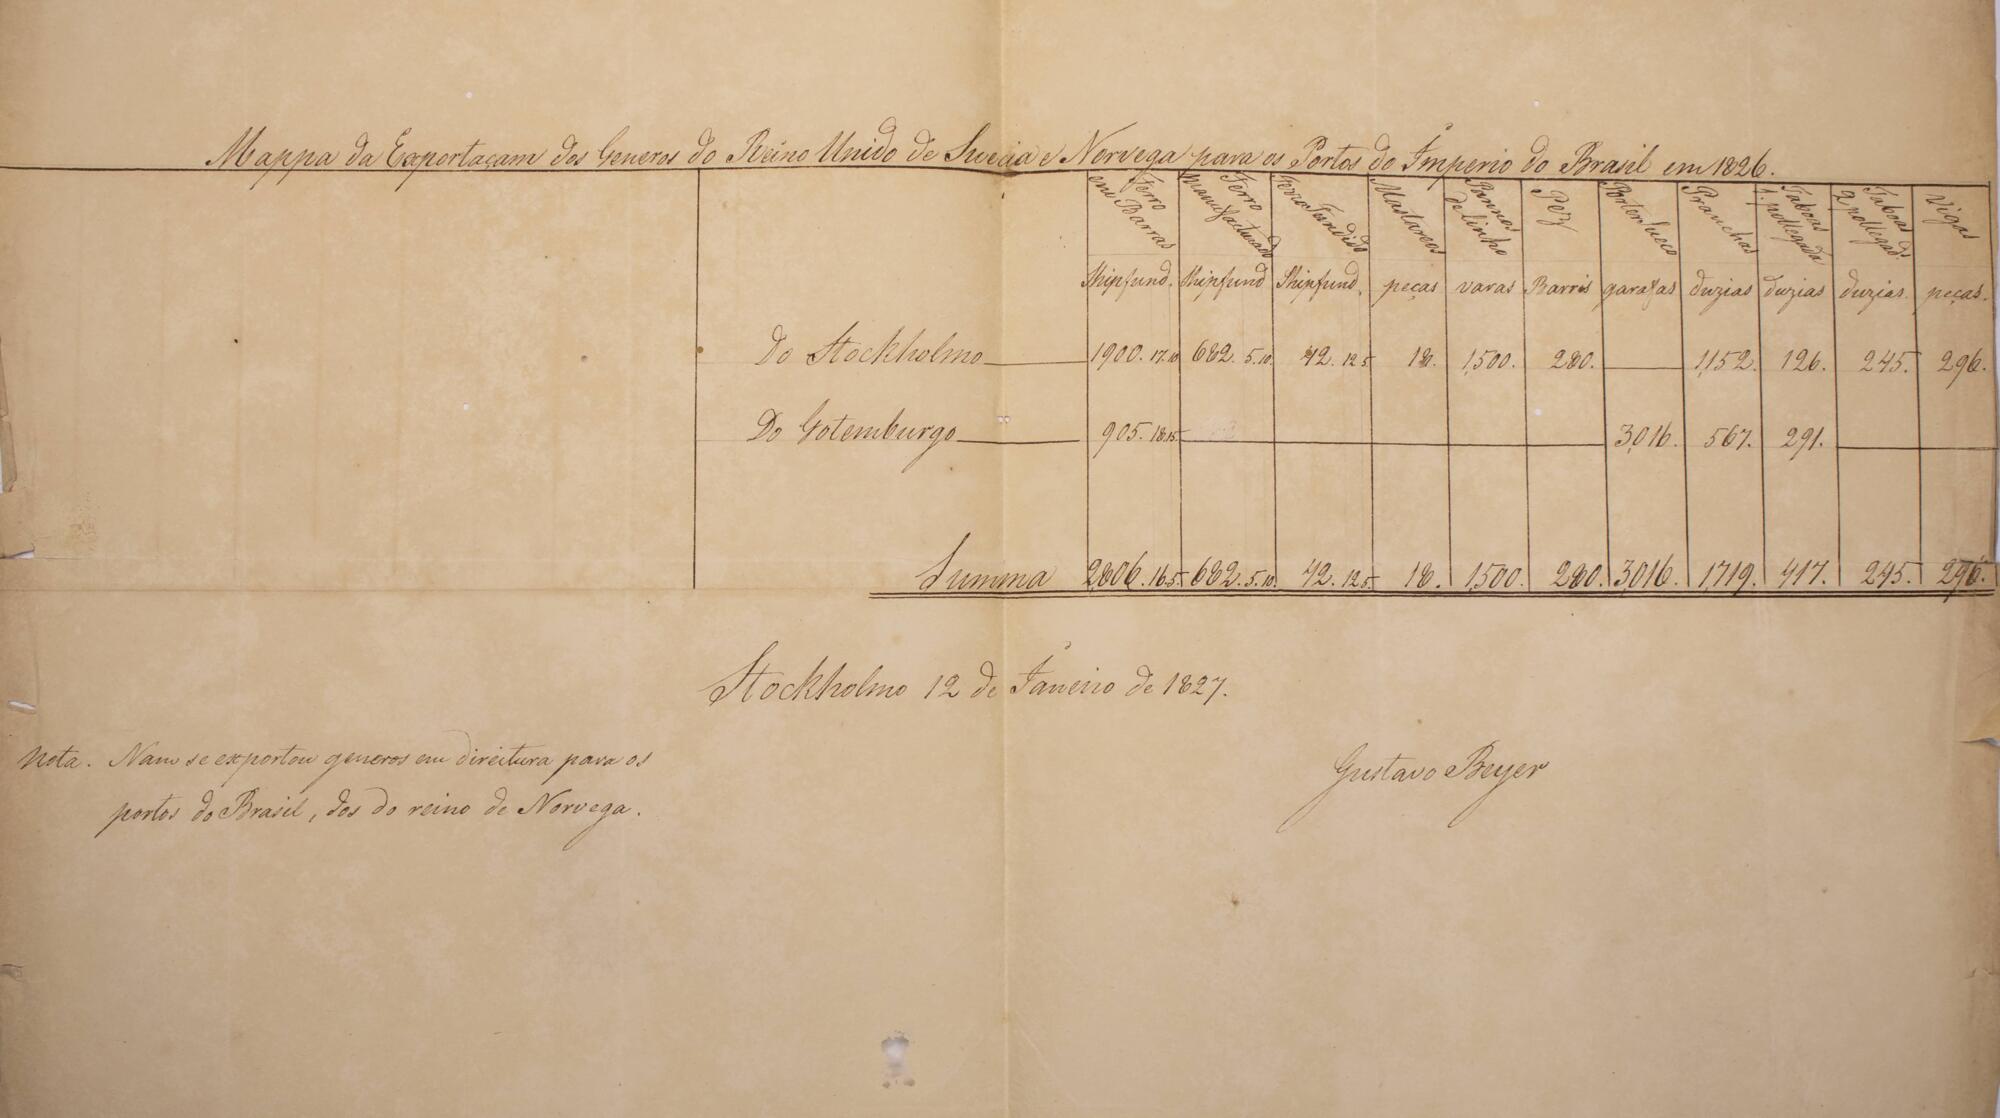 Mappa da Exportaçam dos Generos do Reino Unido de Suecia e Norvega para os Portos do Imperio do Brasil em 1826.
Ferro em Barras Ferro manufacturado Ferro Fundido Mastareos Pannos de linho Pez Porter Sueco Pranchas Taboas 1. pollegada Taboas d. 2 pollegad.s Vigas
Shipfund. Shipfund Shipfund. peças varas Barris garafas duzias duzias duzias. peças.
Do Stockholmo 1900. 17.10 682. 5.10. 42. 12.5 18. 1,500. 280. 1,152. 126. 245. 296.
Do Gotemburgo 905. 18.15 3,016. 567. 291.
Summa 2,806. 16.5. 682. 5.10. 42. 12.5. 18. 1,500. 280. 3,016. 1,719. 417. 245. 296.
Stockholmo 12 de Janeiro de 1827.
Nota. Nam se exportou generos em direitura para os
portos do Brasil, dos do reino de Norvega.
Gustavo Beyer